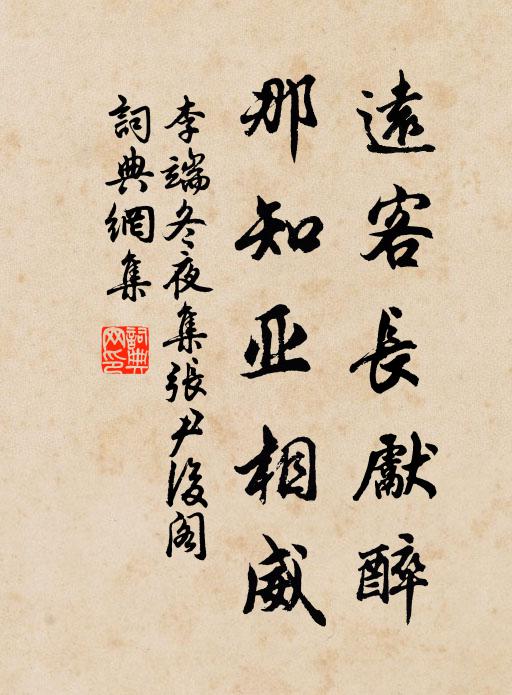 遠客長獻醉
那知亚相威
李端冬夜集張尹後阁
詞典網集
詞典网印